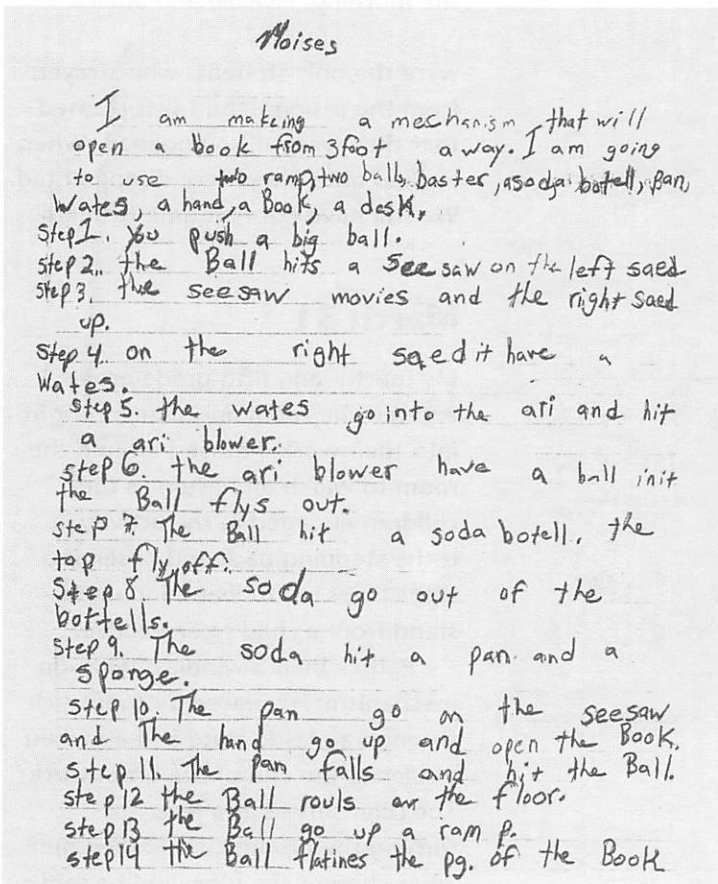 Moises
I am making a mechanism that will
open a book from 3foot away. I am going
to use two ramp, two balls, baster, a soda botell, pan,
wates, a hand, a Book, a desk,
Step1. You push a big ball.
step 2. the Ball hits a see saw on the left saed
step 3. the seesaw movies and the right saed
up.
step 4. on the right saed it have a
wates.
step 5. the wates go into the ari and hit
a ari blower.
step 6. the ari blower have a ball init
the Ball flys out.
step 7. The Ball hit a soda botell. the
top fly off.
step 8. The soda go out of the
bottells.
step 9. The soda hit a pan. and a
sponge.
step 10. The pan go on the seesaw
and The hand go up and open the Book.
step 11. The pan falls and hit the Ball.
step 12 the Ball rouls on the floor.
step 13 the Ball go up a ramp.
step 14 the Ball flatines the pg. of the Book